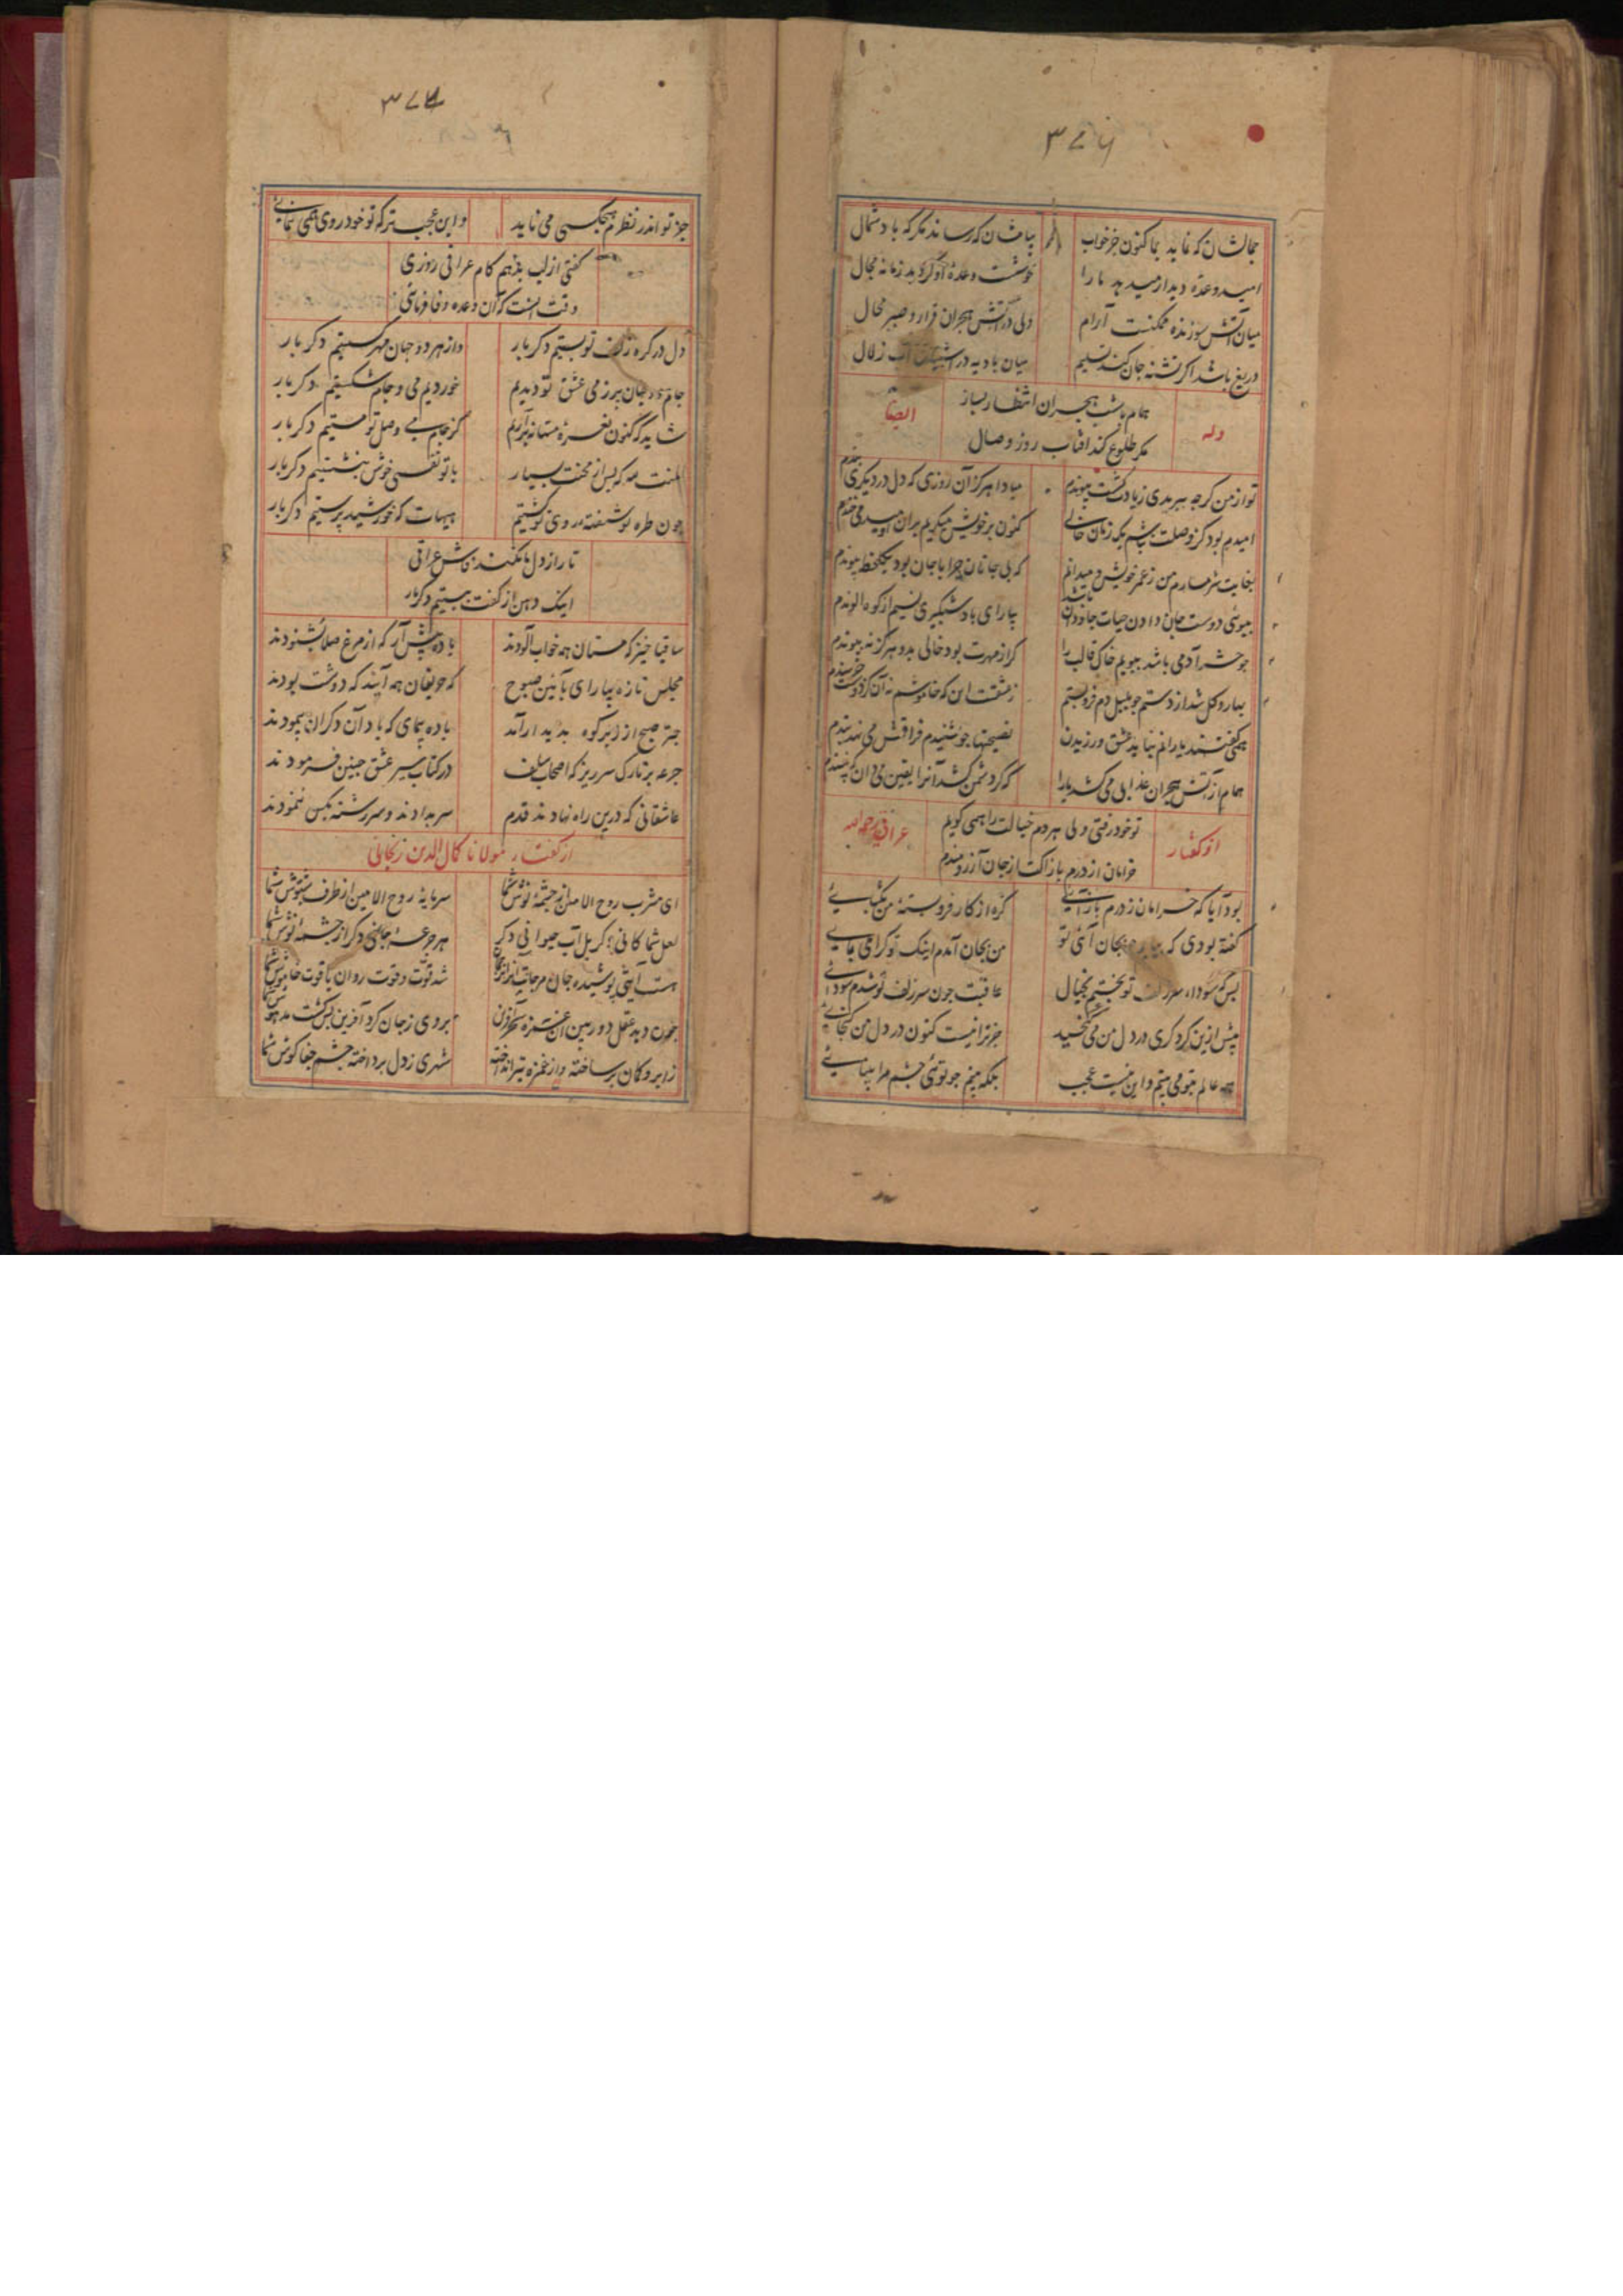 ۳۷۵
جمالشان که نماید بما کنون جز خواب
پیامشان که رساند مکر که باد شمال
امید وعدهٔ دیدار میدهد ما را
خوشست وعده او کر دهد زمانه مجال
میان آتش سوزنده ممکنست آرام
ولی در آتش هجران قرار و صبر محال
دریغ باشد اکر تشنه جان کند تسلیم
میان بادیه در اشتیاق آب زلال
همام با شب هجران انتظار بساز
مکر طلوع کند افتاب روز وصال
وله
ایضا
تو از من کرچه ببریدی زیادت کشت پیوندم
مبادا هرکز آن روزی که دل در دیکری بندم
امیدم بود کز وصلت بباشم یک زمان خالی
کنون بر خویش میکریم بران اومید می خندم
بغایت شرمسارم من ز عمر خویش و میدانم
که بی جانان چرا با جان بود یکلحظه پیوندم
ببوی دوست جان دادن حیات جاودان باشد
بیار ای باد شبکیری نسیم از کوه الوندم
چو حشر آدمی باشد ببویم خاک قالب را
کر از مهرت بود خالی بدو هرکز نه پیوندم
بهار و کل شد از دستم چو بلبل دم فرو بستم
همی کفتند یارانم نباید عشق ورزیدن
نصیحتها چو نشنیدم فراقش می دهد پندم
همام از آتش هجران عذابی می کشد یارا
که کر دشمن کشد آنرا یقین می دان که نپسندم
تو خود رفتی ولی هر دم خیالت را همی کویم
خرامان از درم باز آکت از جان آرزومندم
از کفتار
عراقی رحمه الله
بود آیا که خرامان ز درم باز آیی
کره از کار فروبستهٔ من بکشایی
کفته بودی که بیایم چو بجان آئی تو
من بجان آمدم اینک تو کرا می نمایی
بس که سودای سر زلف تو پختم بخیال
عاقبت چون سر زلف تو شدم سودائی
پیش ازین کر دکری در دل من می کنجید
جز ترا نیست کنون در دل من کنجایی
همه عالم بتو می بینم و این نیست عجب
بکه بینم چو توئی چشم مرا بینایی
۳۷۶
جز تو اندر نظرم هیچکسی می ناید
و این عجب تر که تو خود روی همی ننمایی
کفتی از لب بدهم کام عراقی روزی
وقت انست که آن وعده وفا فرمائی
دل در کره زلف تو بستیم دکر بار
واز هر دو جهان مهر کسستیم دکر بار
جام دو جهان پر ز می عشق تو دیدیم
خوردیم می و جام شکستیم دکر بار
شاید که کنون نعرهٔ مستانه برآریم
کز جام می وصل تو مستیم دکر بار
المنت لله که پس از محنت بسیار
با تو نفسی خوش بنشستیم دکر بار
چون طره تو شیفته روی تو کشتیم
هیهات که خورشید پرستیم دکر بار
تا راز دل ما نکند فاش عراقی
اینک دهن از کفت ببستیم دکر بار
ساقیا خیز که مستان همه خواب آلودند
باده پیش آر که از مرغ صلا بشنودند
مجلس تازه بیارای بآئین صبوح
که حریفان همه آیند که دوشت بودند
چتر صبح از زبر کوه پدید ار آمد
باده پیمای که باد آن دکران پیمودند
جرعه بر تارک سر ریز که اصحاب سلف
در کتاب سیر عشق چنین فرمودند
عاشقانی که درین راه نهادند قدم
سر بدادند و سر رشته بکس ننمودند
از کفتار مولانا کمال الدین زنجانی
ای مشرب روح الامین از چشمهٔ نوش شما
سرمایه روح الامین از طرف شبپوش شما
لعل شما کانی دکر بل آب حیوانی دکر
هر جرعهٔ جانی دکر از چشمهٔ نوش شما
شد قوّت و قوت روان یاقوت خاموش شما
چون دید عقل دوربین آن غمزه سحر آفرین
بروی ز جان کرد آفرین بس کشت مدهوش شما
ز ابرو کمان برساخته و از غمزه تیر انداخته
شهری ز دل پرداخته چشم جفا کوش شما